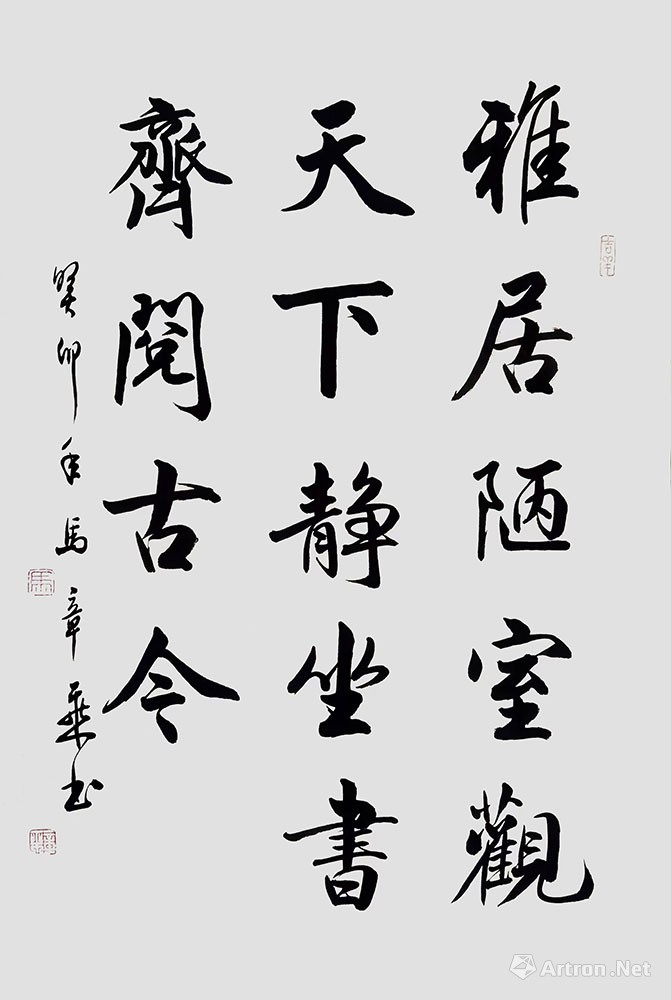 雅居陋室觀
天下静坐書
齊閱古今
癸卯年馬章乘书
Artron.Net